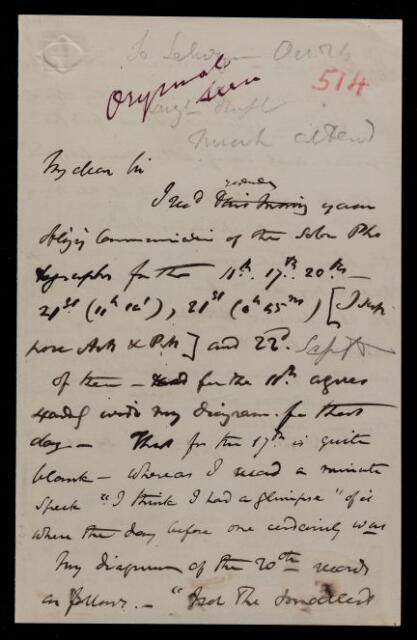 To Selwyn
514
Original
seen
rough draft
much altered
My dear Sir
yesterday
I rec'd this morning your
oblig'g Communication of the Solar Pho
tographs for the 11th. 17th. 20th —
21st (11h 12'), 21st (0h 45m) [I sup
pose AM & PM] and 22d. Sept.
of these — for the 11th agrees
exactly with my diagram for that
day — That for the 17th is quite
blank — whereas I record a minute
speck "I think I had a glimpse" of it
where the day before one certainly was
My diagram of the 20th records
as follows. — "Not the smallest